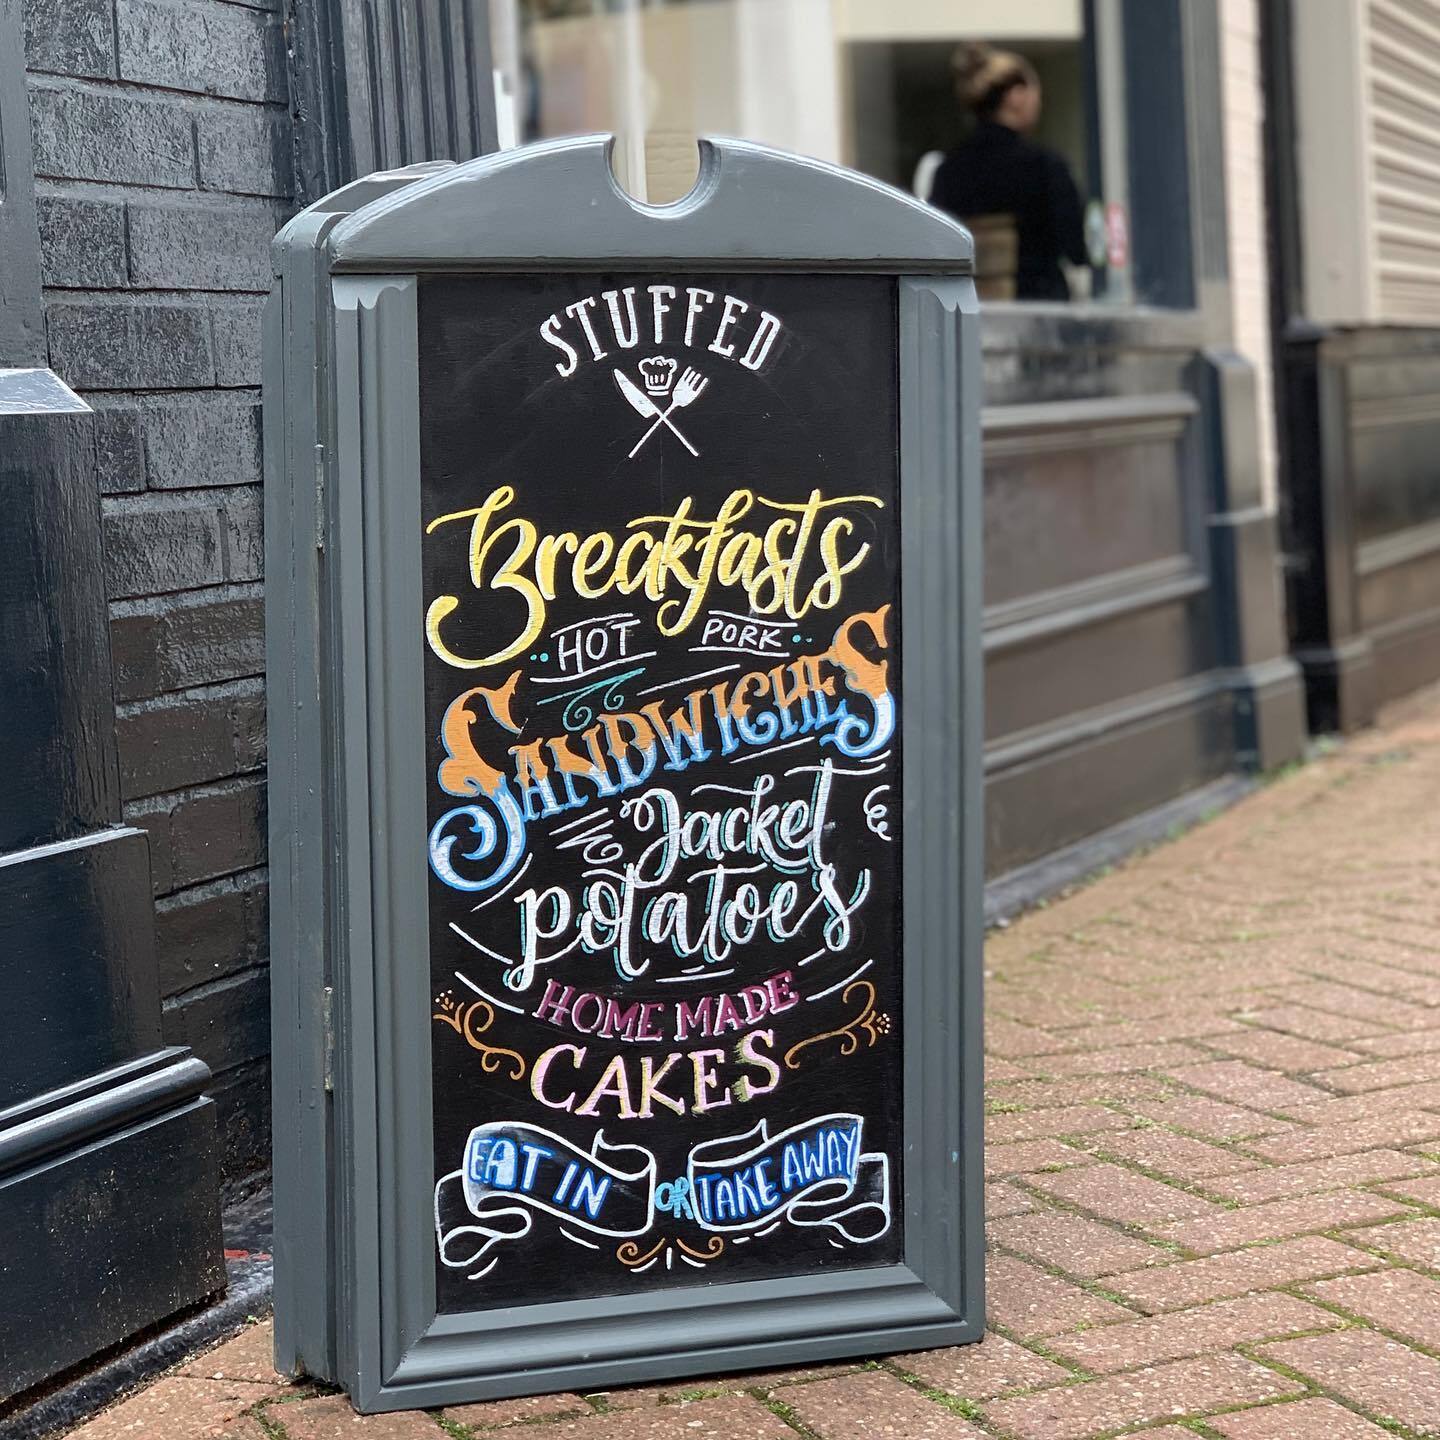 STUFFED
Breakfasts
HOT PORK
SANDWICHES
Jacket
potatoes
HOME MADE
CAKES
EAT IN OR TAKE AWAY